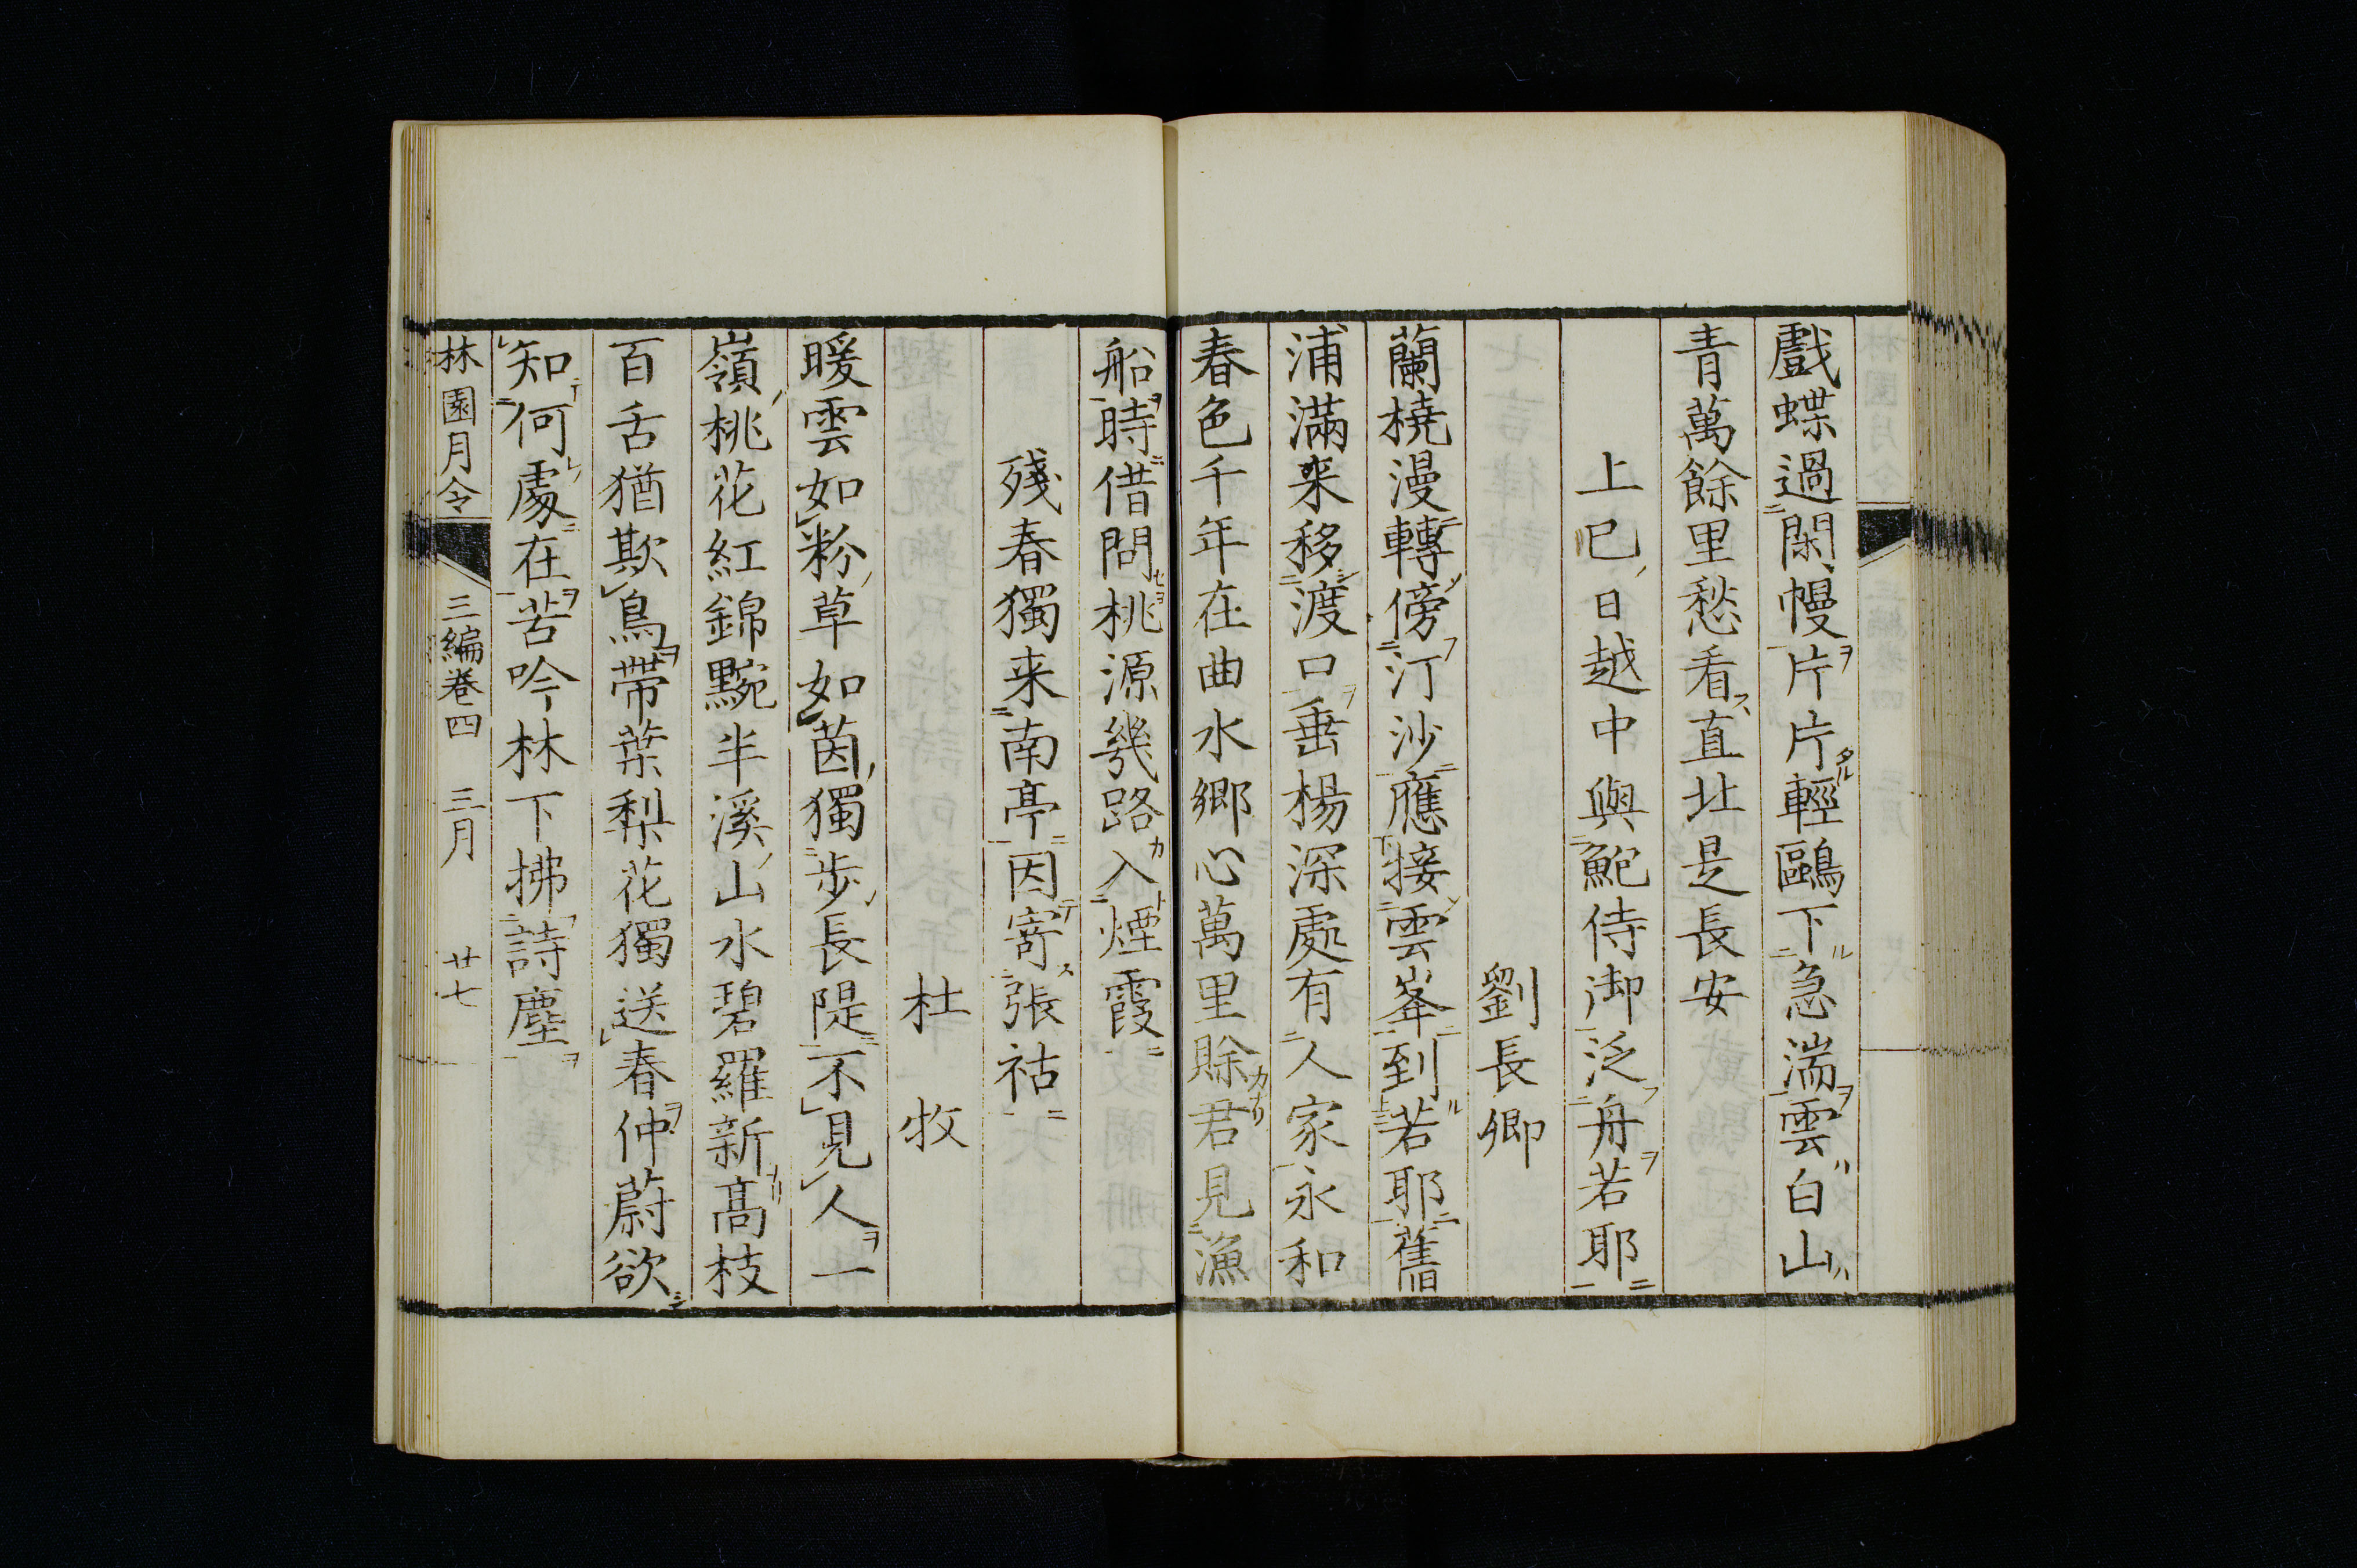 戯蝶過閑幔片片輕鷗下急湍雲白山
青萬餘里愁看直北是長安
上巳日越中與鮑侍御泛舟若耶
劉長卿
蘭橈漫轉傍汀沙應接雲峯到若耶舊
浦滿来移渡口垂楊深處有人家永和
春色千年在曲水郷心萬里賖君見漁
船時借問桃源幾路入煙霞
殘春獨来南亭因寄張祜
杜牧
暖雲如粉草如茵獨歩長隄不見人一
嶺桃花紅錦黦半溪山水碧羅新髙枝
百舌猶欺鳥帶葉梨花獨送春仲蔚欲
知何處在苦吟林下拂詩塵
林園月令 三編卷四 三月 廿七